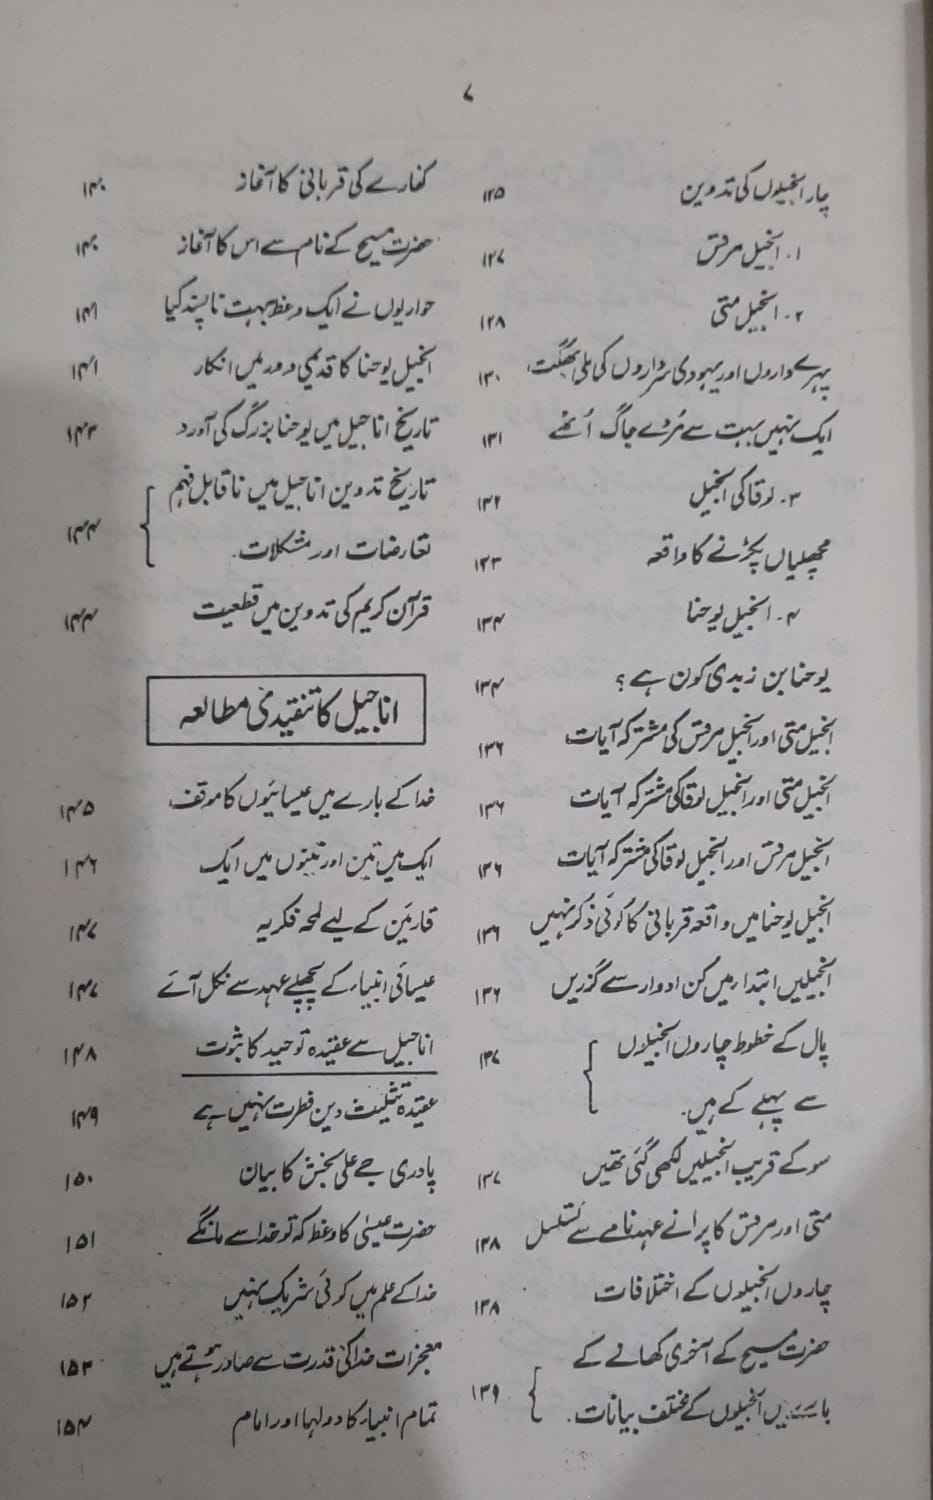 ۷
چار انجیلوں کی تدوین ۱۲۵
۱۔ انجیل مرقس ۱۲۷
۲۔ انجیل متی ۱۲۸
پہرے داروں اور یہودی سرداروں کی ملی بھگت ۱۳۰
ایک نہیں بہت سے مُردے جاگ اُٹھے ۱۳۱
۳۔ لوقا کی انجیل ۱۳۲
مچھلیاں پکڑنے کا واقعہ ۱۳۳
۴۔ انجیل یوحنا ۱۳۴
یوحنا بن زبدی کون ہے؟ ۱۳۴
انجیل متی اور انجیل مرقس کی مشترکہ آیات ۱۳۶
انجیل متی اور انجیل لوقا کی مشترکہ آیات ۱۳۶
انجیل مرقس اور انجیل لوقا کی مشترکہ آیات ۱۳۶
انجیل یوحنا میں واقعہ قربانی کا کوئی ذکر نہیں ۱۳۶
انجیلیں ابتدا میں کن ادوار سے گزریں ۱۳۶
پال کے خطوط چاروں انجیلوں
سے پہلے کے ہیں۔ ۱۳۷
سو کے قریب انجیلیں لکھی گئی تھیں ۱۳۷
متی اور مرقس کا پرانے عہد نامے سے تسلسل ۱۳۸
چاروں انجیلوں کے اختلافات ۱۳۸
حضرت مسیح کے آخری کھانے کے
بارے میں انجیلوں کے مختلف بیانات۔ ۱۳۹
کفارے کی قربانی کا آغاز ۱۴۰
حضرت مسیح کے نام سے اس کا آغاز ۱۴۰
حواریوں نے ایک وعظ بہت ناپسند کیا ۱۴۱
انجیل یوحنا کا قدیمی دور میں انکار ۱۴۱
تاریخ اناجیل میں یوحنا بزرگ کی آورد ۱۴۳
تاریخ تدوین اناجیل میں ناقابل فہم
تعارضات اور مشکلات۔ ۱۴۴
قرآن کریم کی تدوین میں قطعیت ۱۴۴
اناجیل کا تنقیدی مطالعہ
خدا کے بارے میں عیسائیوں کا موقف ۱۴۵
ایک میں تین اور تینوں میں ایک ۱۴۶
قارئین کے لیے لمحہ فکریہ ۱۴۷
عیسائی انبیاء کے پچھلے عہد سے نکل آئے ۱۴۷
اناجیل سے عقیدہ توحید کا ثبوت ۱۴۸
عقیدہ تثلیث دین فطرت نہیں ہے ۱۴۹
پادری جے علی بخش کا بیان ۱۵۰
حضرت عیسیٰ کا وعظ کہ تو خدا سے مانگے ۱۵۱
خدا کے علم میں کوئی شریک نہیں ۱۵۲
معجزات خدا کی قدرت سے صادر ہوتے ہیں ۱۵۳
تمام انبیاء کا دولہا اور امام ۱۵۴